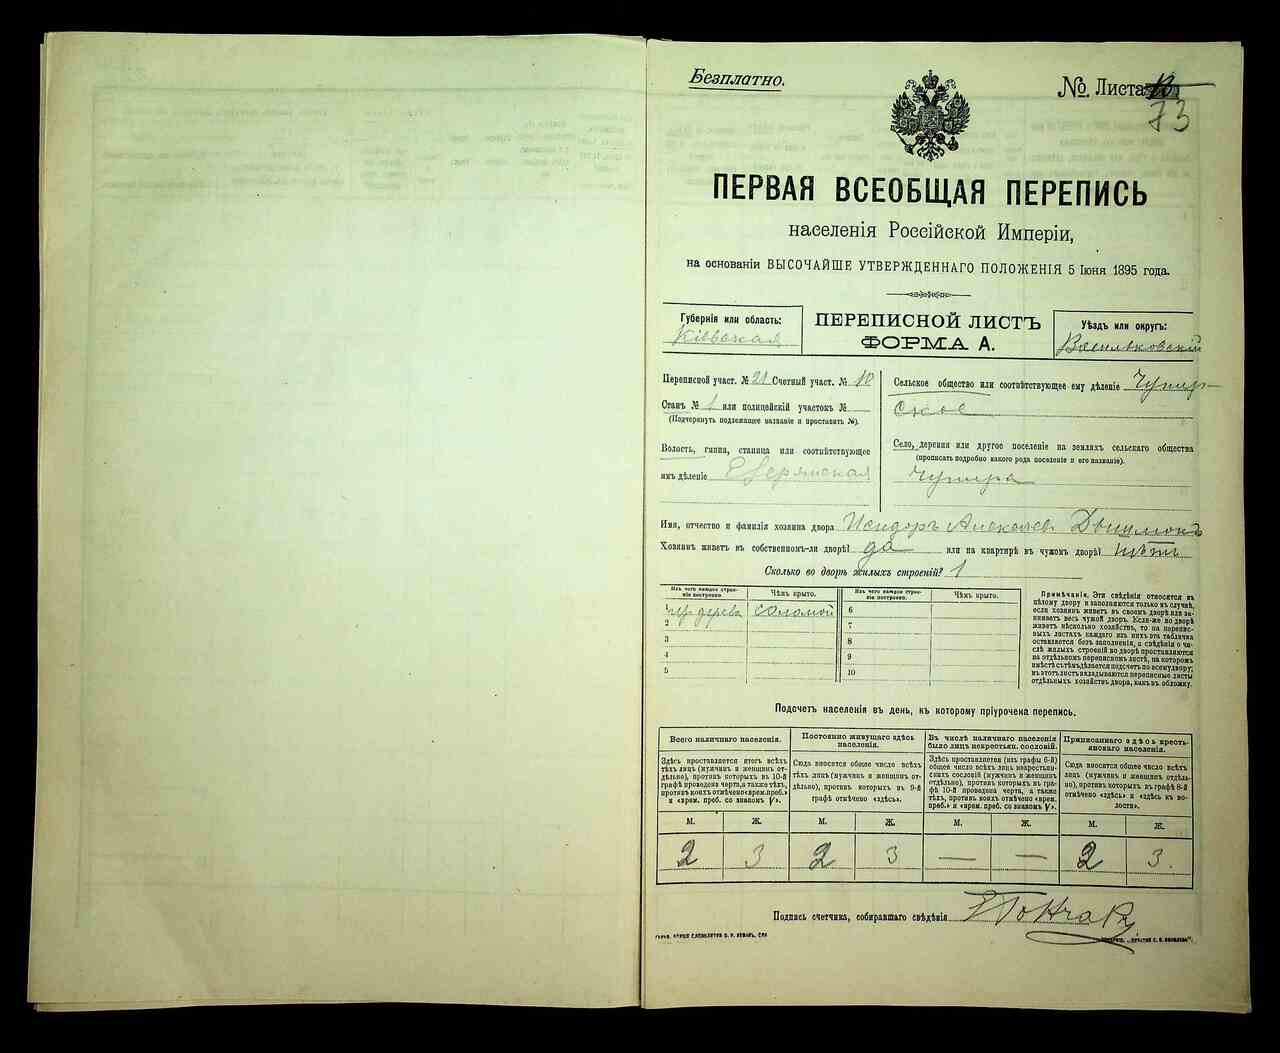 Безплатно.
№ Листа
73
ПЕРВАЯ ВСЕОБЩАЯ ПЕРЕПИСЬ
населенія Россійской Имперіи,
на основаніи ВЫСОЧАЙШЕ УТВЕРЖДЕННАГО ПОЛОЖЕНІЯ 5 Іюня 1895 года.
Губернія или область:
Кіевская
ПЕРЕПИСНОЙ ЛИСТЪ
ФОРМА А.
Уѣздъ или округъ:
Васильковскій
Переписной участ. № 21 Счетный участ. № 10
Станъ № 1 или полицейскій участокъ №
(Подчеркнуть подлежащее названіе и проставить №).
Волость, гмина, станица или соотвѣтствующее
имъ дѣленіе
Сельское общество или соотвѣтствующее ему дѣленіе Чупир-
ское
Село, деревня или другое поселеніе на земляхъ сельскаго общества
(прописать подробно какого рода поселеніе и его названіе).
Чупира
Имя, отчество и фамилія хозяина двора Исидоръ Алексѣев
Хозяинъ живетъ въ собственномъ-ли дворѣ? да или на квартирѣ въ чужомъ дворѣ? нѣтъ
Сколько во дворѣ жилыхъ строеній? 1
Изъ чего каждое строеніе построено.
Чѣмъ крыто.
Изъ чего каждое строеніе построено.
Чѣмъ крыто.
дерева соломой
2
3
4
5
6
7
8
9
10
Примѣчаніе. Эти свѣдѣнія относятся къ
цѣлому двору и заполняются только въ случаѣ,
если хозяинъ живетъ въ своемъ дворѣ или занимаетъ
весь чужой дворъ. Если-же во дворѣ
живетъ нѣсколько хозяйствъ, то на переписныхъ
листахъ каждаго изъ нихъ эта табличка
оставляется безъ заполненія, а свѣдѣнія о числѣ
жилыхъ строеній во дворѣ проставляются
на отдѣльномъ переписномъ листѣ, на которомъ
вмѣстѣ съ тѣмъ дѣлается подсчетъ по всему двору;
въ этотъ листъ вкладываются переписные листы
отдѣльныхъ хозяйствъ двора, какъ въ обложку.
Подсчетъ населенія въ день, къ которому пріурочена перепись.
Всего наличнаго населенія.
Здѣсь проставляется итогъ всѣхъ
тѣхъ лицъ (мужчинъ и женщинъ отдѣльно),
противъ которыхъ въ 10-й
графѣ проведена черта, а также тѣхъ,
противъ коихъ отмѣчено «врем. преб.»
и «врем. преб. со знакомъ V».
Постоянно живущаго здѣсь
населенія.
Сюда вносится общее число всѣхъ
тѣхъ лицъ (мужчинъ и женщинъ отдѣльно),
противъ которыхъ въ 9-й
графѣ отмѣчено «здѣсь».
Въ числѣ наличнаго населенія
было лицъ некрестьян. сословій.
Здѣсь проставляется (изъ графы 6-й)
общее число всѣхъ лицъ некрестьянскихъ
сословій (мужчинъ и женщинъ
отдѣльно), противъ которыхъ въ графѣ
10-й проведена черта, а также
тѣхъ, противъ коихъ отмѣчено «врем.
преб.» и «врем. преб. со знакомъ V».
Приписаннаго здѣсь крестьянскаго
населенія.
Сюда вносится общее число всѣхъ
лицъ (мужчинъ и женщинъ отдѣльно),
противъ которыхъ въ графѣ 8-й
отмѣчено «здѣсь» и «здѣсь къ волости».
М. Ж. М. Ж. М. Ж. М. Ж.
2 3 2 3 — — 2 3.
Подпись счетчика, собиравшаго свѣдѣнія